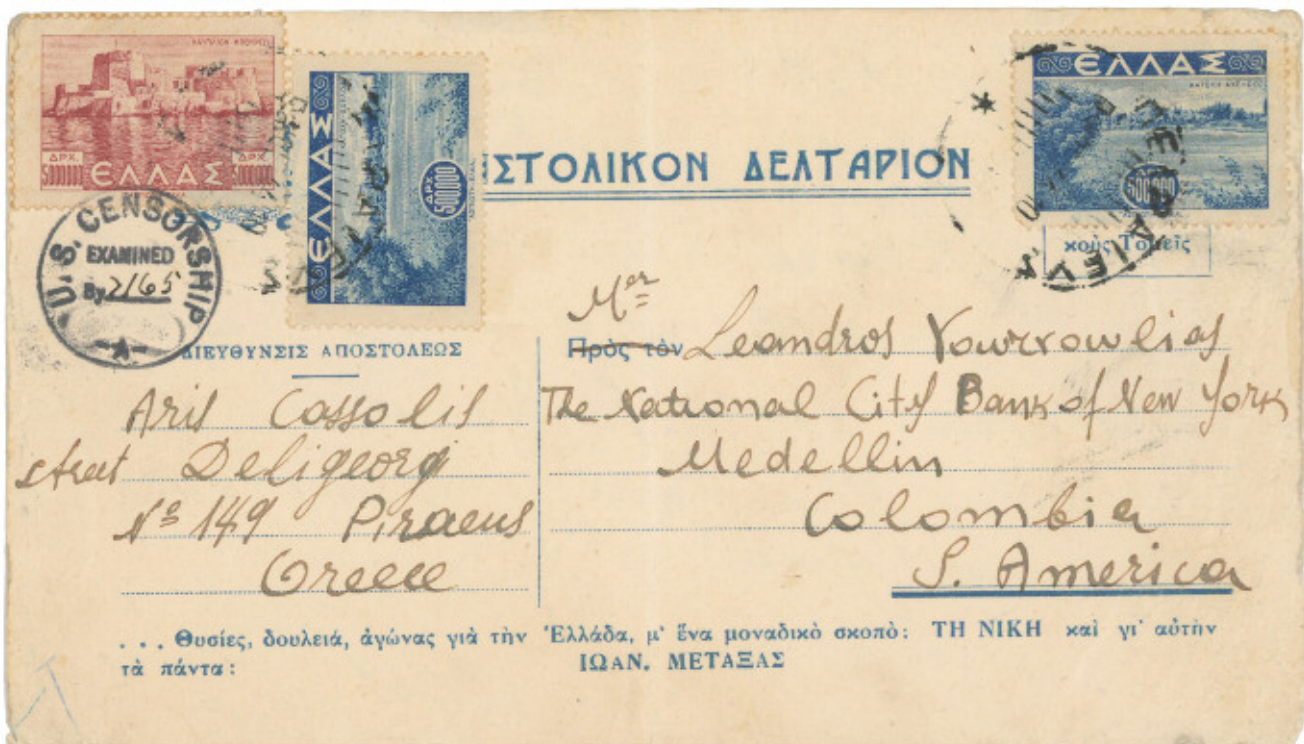 ΔΡΧ. ΔΡΧ.
500000 ΕΛΛΑΣ 500000
ΕΛΛΑΣ
ΔΡΧ
500000
ΕΛΛΑΣ
500000
ΙΣΤΟΛΙΚΟΝ ΔΕΛΤΑΡΙΟΝ
κοὺς Τομεῖς
U.S. CENSORSHIP
EXAMINED
By 2165
-A-
ΔΙΕΥΘΥΝΣΙΣ ΑΠΟΣΤΟΛΕΩΣ
Aris Cassolis
Deligeorg
Nº 149 Piraeus
Greece
Mer
Πρὸς τὸν Leandros
The National City Bank of New York
Medellin
Colombia
S. America
. . . Θυσίες, δουλειά, ἀγώνας γιὰ τὴν Ἑλλάδα, μ' ἕνα μοναδικὸ σκοπὸ: ΤΗ ΝΙΚΗ καὶ γι' αὐτὴν
τὰ πάντα:
ΙΩΑΝ. ΜΕΤΑΞΑΣ